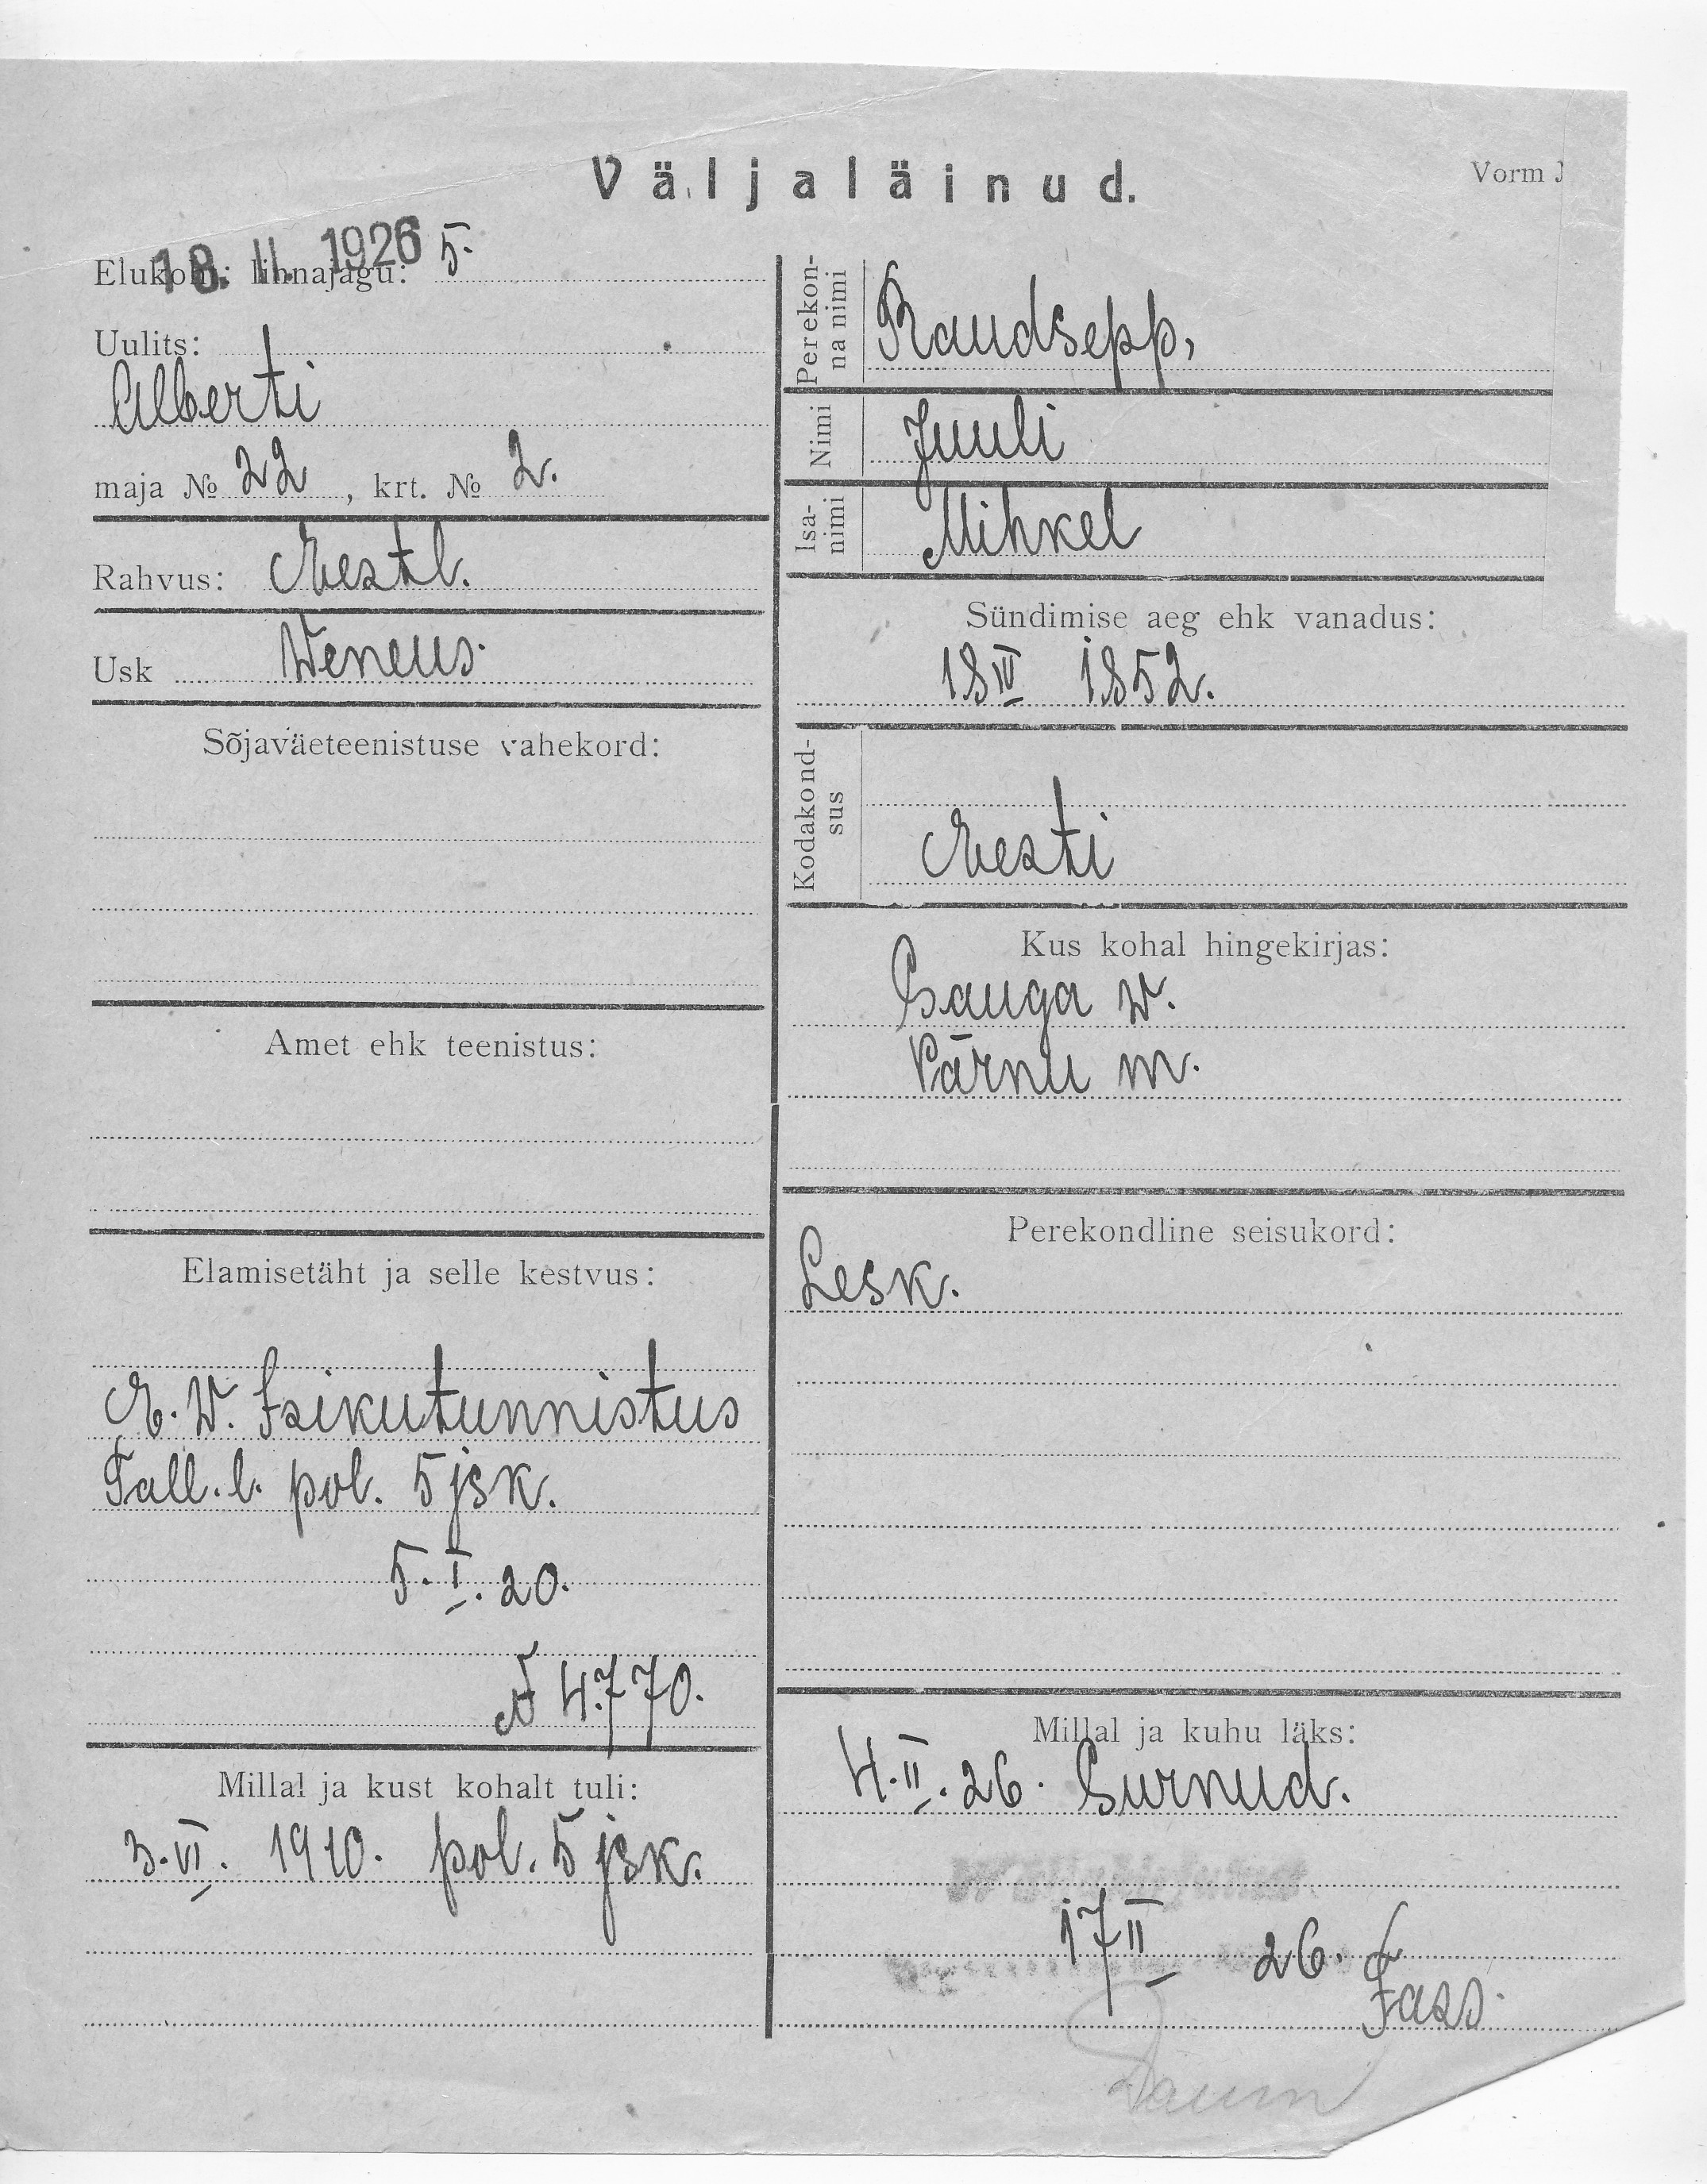 Väljaläinud.
Vorm
18. II. 1926
Elukoht: linnajagu: 5.
Uulits:
Alberti
maja № 22, krt. № 2.
Rahvus: Eestl.
Usk Weneus.
Sõjaväeteenistuse vahekord:
Amet ehk teenistus:
Elamisetäht ja selle kestvus:
E. W. Isikutunnistus
Tall. l. pol. 5 jsk.
5. I. 20.
№ 4770.
Millal ja kust kohalt tuli:
3. VI. 1910. pol. 5 jsk.
Perekonna nimi
Raudsepp,
Nimi Juuli
Isanimi Mihkel
Sündimise aeg ehk vanadus:
18 IV 1852.
Kodakondsus
Eesti
Kus kohal hingekirjas:
Sauga w.
Pärnu m.
Perekondline seisukord:
Lesk.
Millal ja kuhu läks:
4. II. 26. Surnud.
17 II 26.